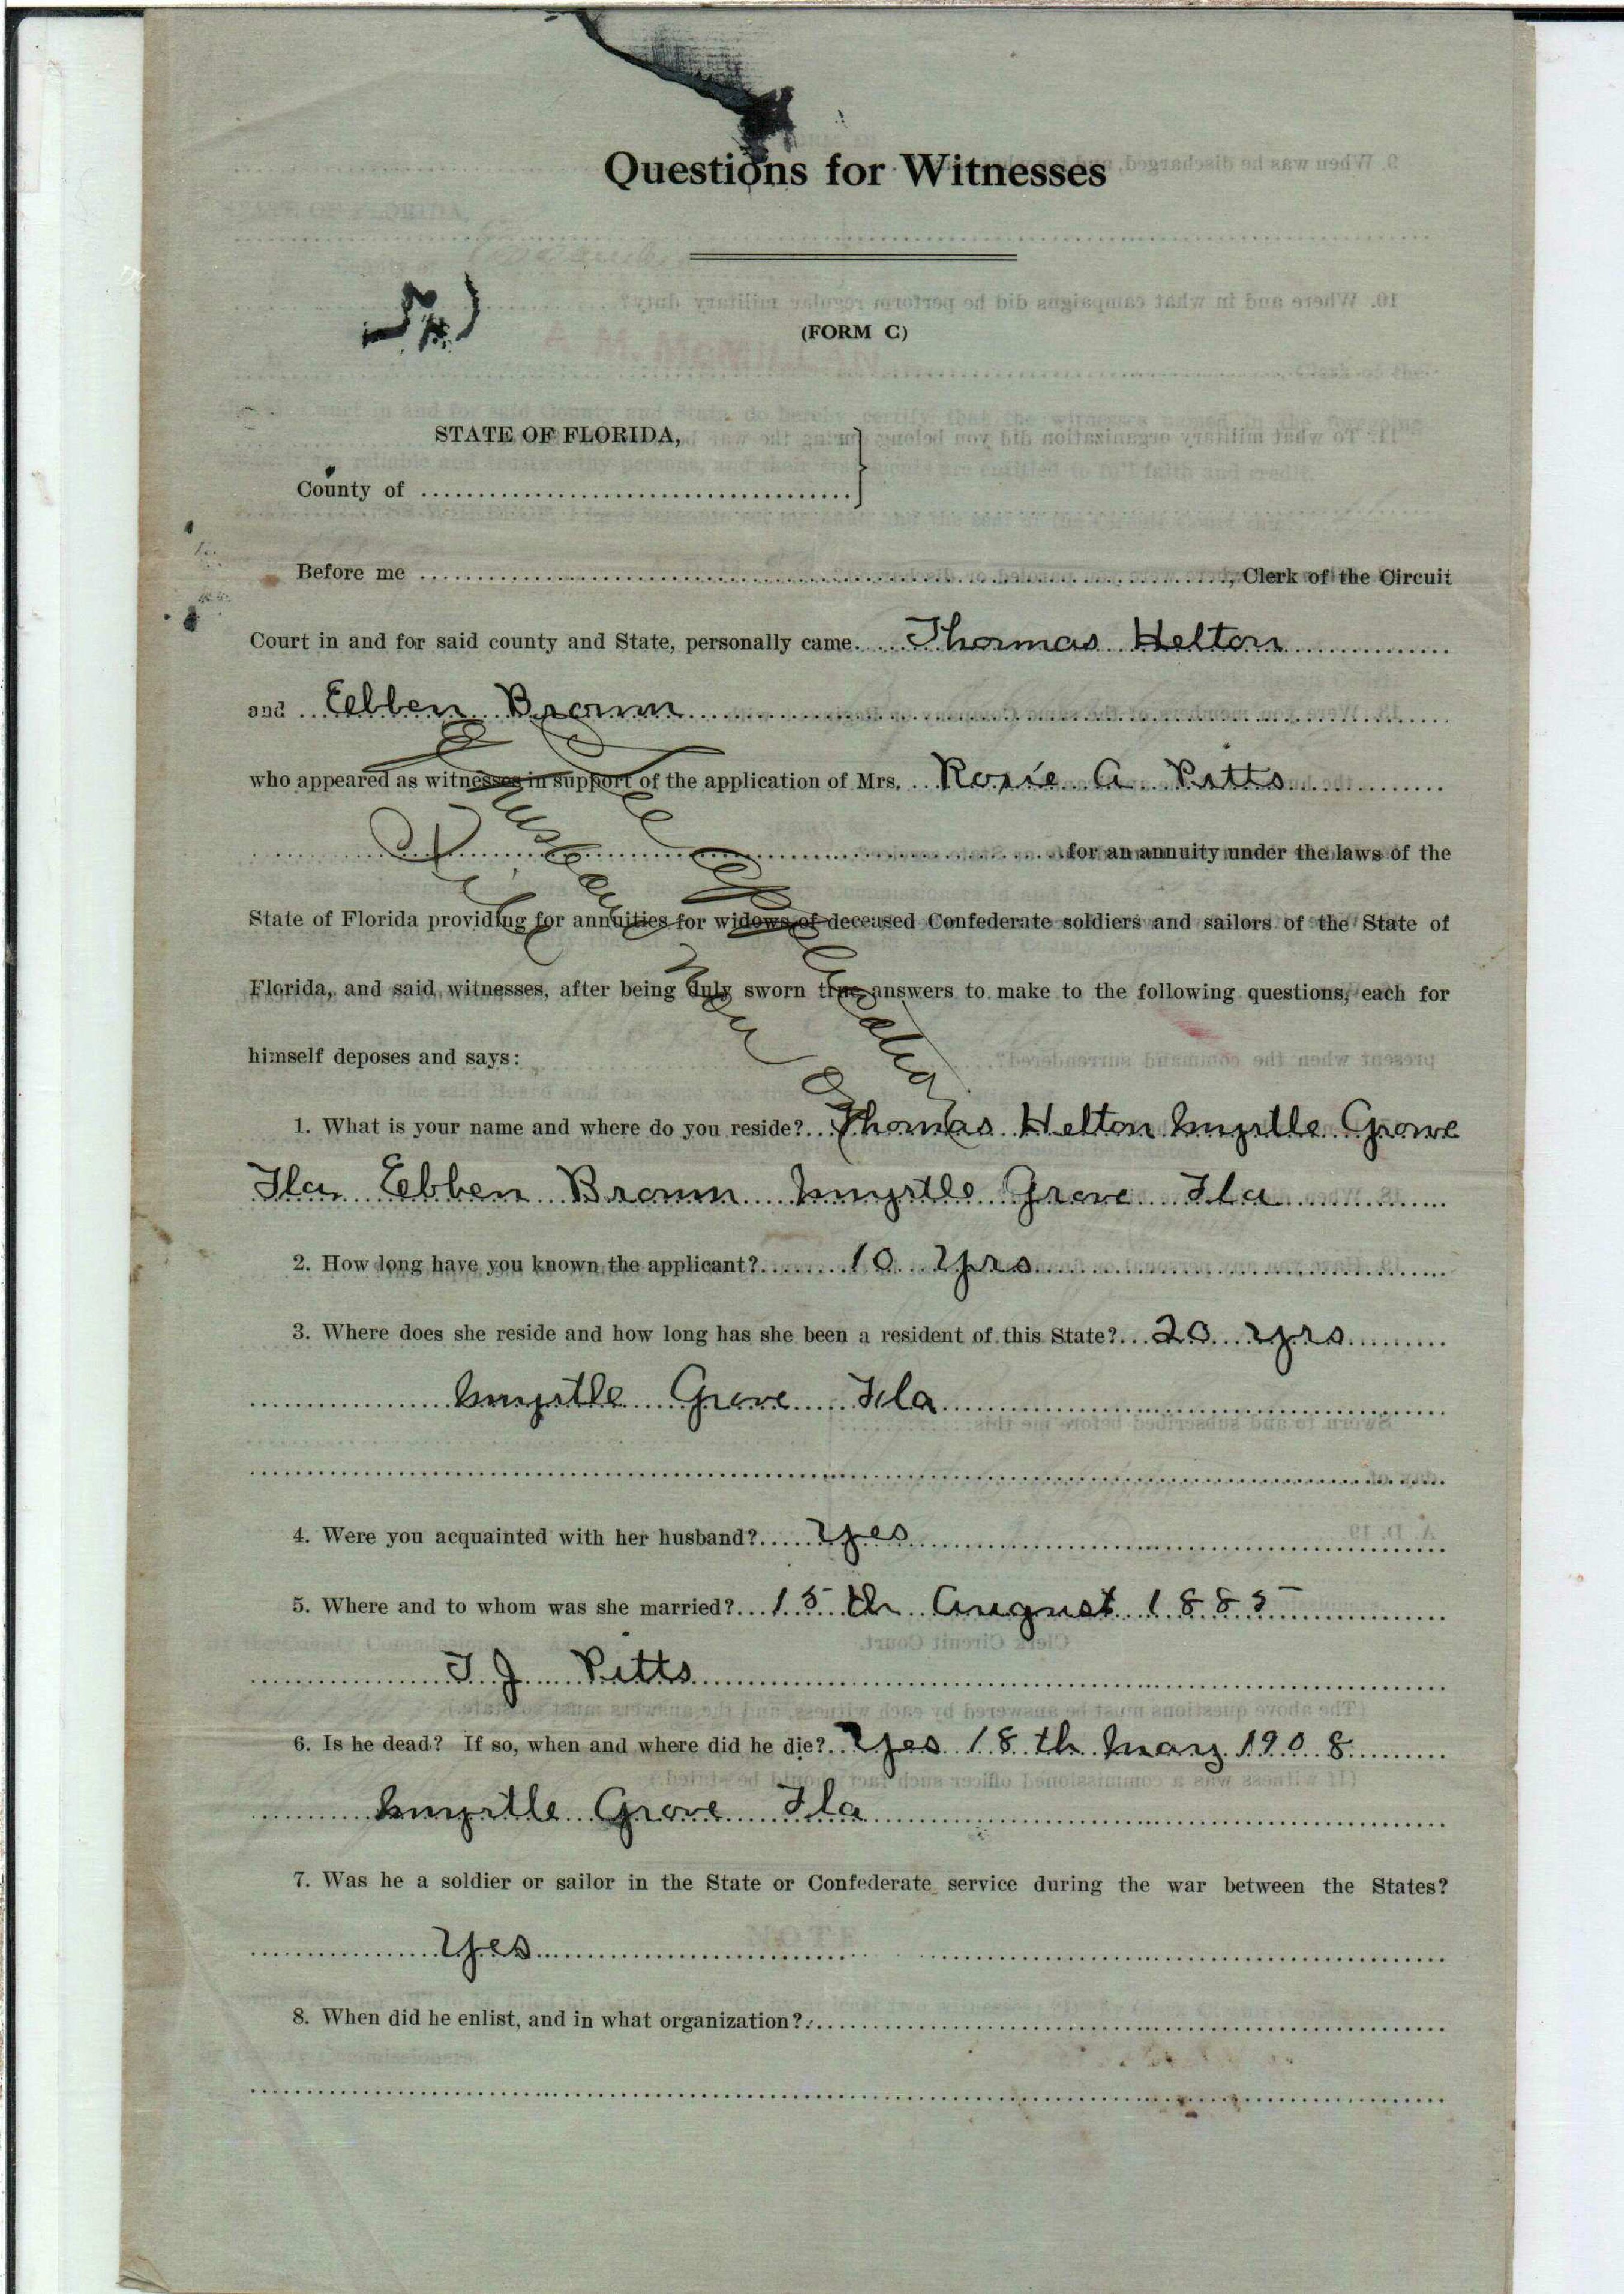 Questions for Witnesses
(FORM C)
STATE OF FLORIDA,
County of
Before me , Clerk of the Circuit
Court in and for said county and State, personally came. Thomas Helton
and Ebben Brown
who appeared as witnesses in support of the application of Mrs. Roxie A Pitts
for an annuity under the laws of the
State of Florida providing for annuities for widows of deceased Confederate soldiers and sailors of the State of
Florida, and said witnesses, after being duly sworn true answers to make to the following questions, each for
himself deposes and says:
See application
of husband now on
File
1. What is your name and where do you reside? Thomas Helton Myrtle Grove
Fla Ebben Brown Myrtle Grove Fla
2. How long have you known the applicant? 10 yrs
3. Where does she reside and how long has she been a resident of this State? 20 yrs
Myrtle Grove Fla
4. Were you acquainted with her husband? Yes
5. Where and to whom was she married? 15 th August 1885
T J Pitts
6. Is he dead? If so, when and where did he die? Yes 18 th May 1908
Myrtle Grove Fla
7. Was he a soldier or sailor in the State or Confederate service during the war between the States?
Yes
8. When did he enlist, and in what organization?